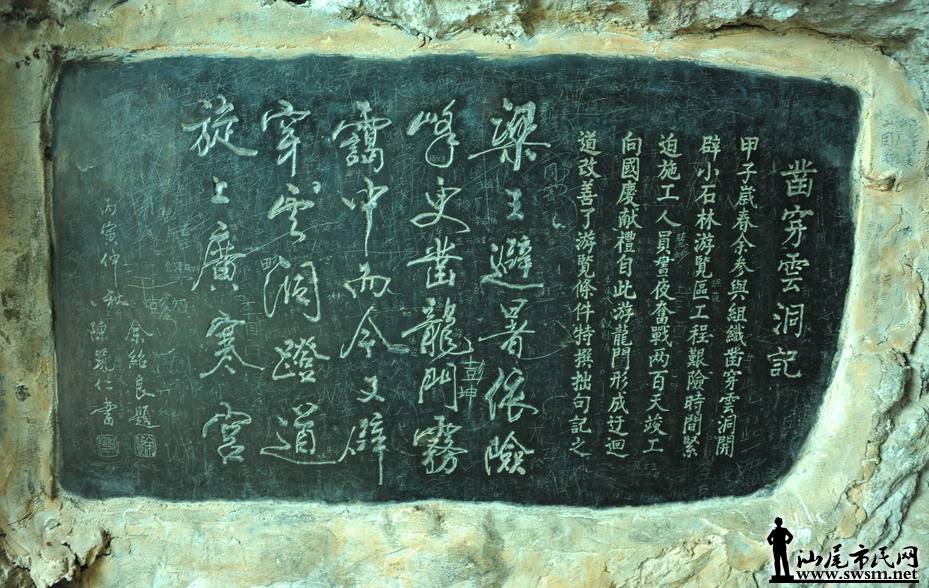 凿穿雲洞記
甲子嵗春余参與組織凿穿雲洞開
辟小石林游覽區工程艱險時間緊
迫施工人員晝夜奮戰两百天竣工
向國慶献禮自此游龍門形成迂迴
道改善了游覽條件特撰拙句記之
梁王避暑依險
峰史凿龍門霧
靄中而今又辟
穿雲洞蹬道
旋上廣寒宮
丙寅仲秋
余紹良題
陳苑仁書
彭坤
汕尾市民网
www.swsm.net